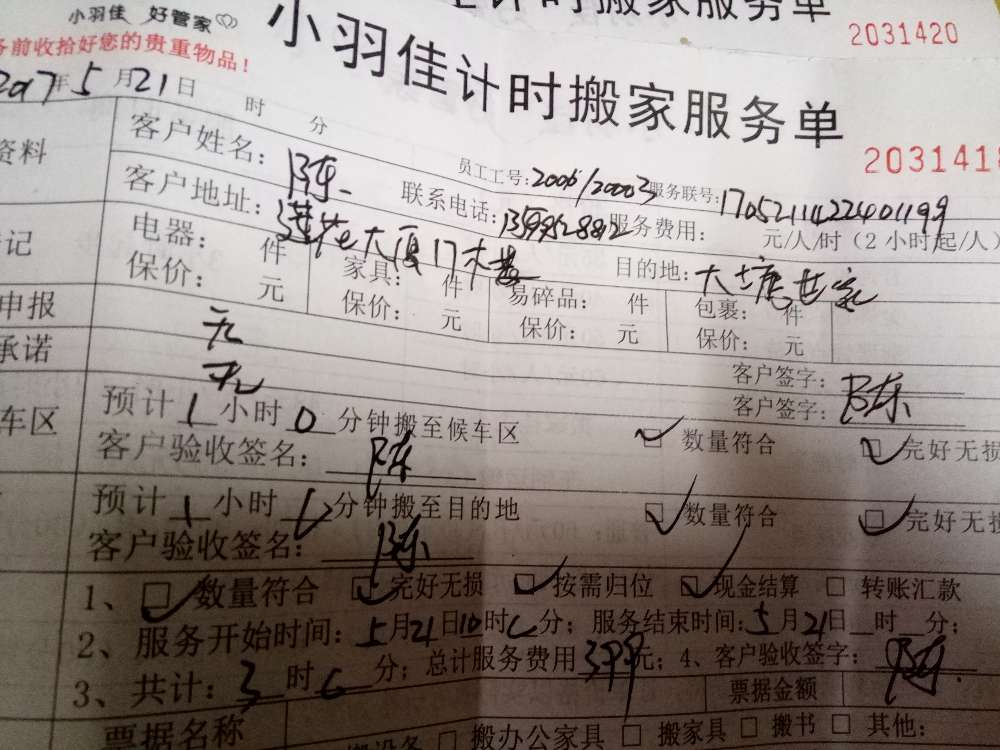 计时搬家服务单
2031420
小羽佳 好管家
务前收拾好您的贵重物品！
小羽佳计时搬家服务单
2031418
2017年5月21日 时 分
资料
客户姓名：陈 员工工号：2006/20003 服务联号：17052114224401199
客户地址：莲花大厦17木楼 联系电话： 服务费用： 元/人/时（2小时起/人）
目的地：大唐世家
电器： 件 家具： 件 易碎品： 件 包裹： 件
保价： 元 保价： 元 保价： 元 保价： 元
记
申报 无 客户签字：陈
承诺 无 客户签字：
车区
预计1小时0分钟搬至候车区 数量符合 完好无损
客户验收签名：陈
预计1小时 分钟搬至目的地 数量符合 完好无损
客户验收签名：陈
1、 数量符合 完好无损 按需归位 现金结算 转账汇款
2、服务开始时间：5月21日10时 分；服务结束时间：5月21日 时 分；
3、共计：3时 分；总计服务费用 元；4、客户验收签字：陈
票据金额
票据名称
搬设备 搬办公家具 搬家具 搬书 其他：